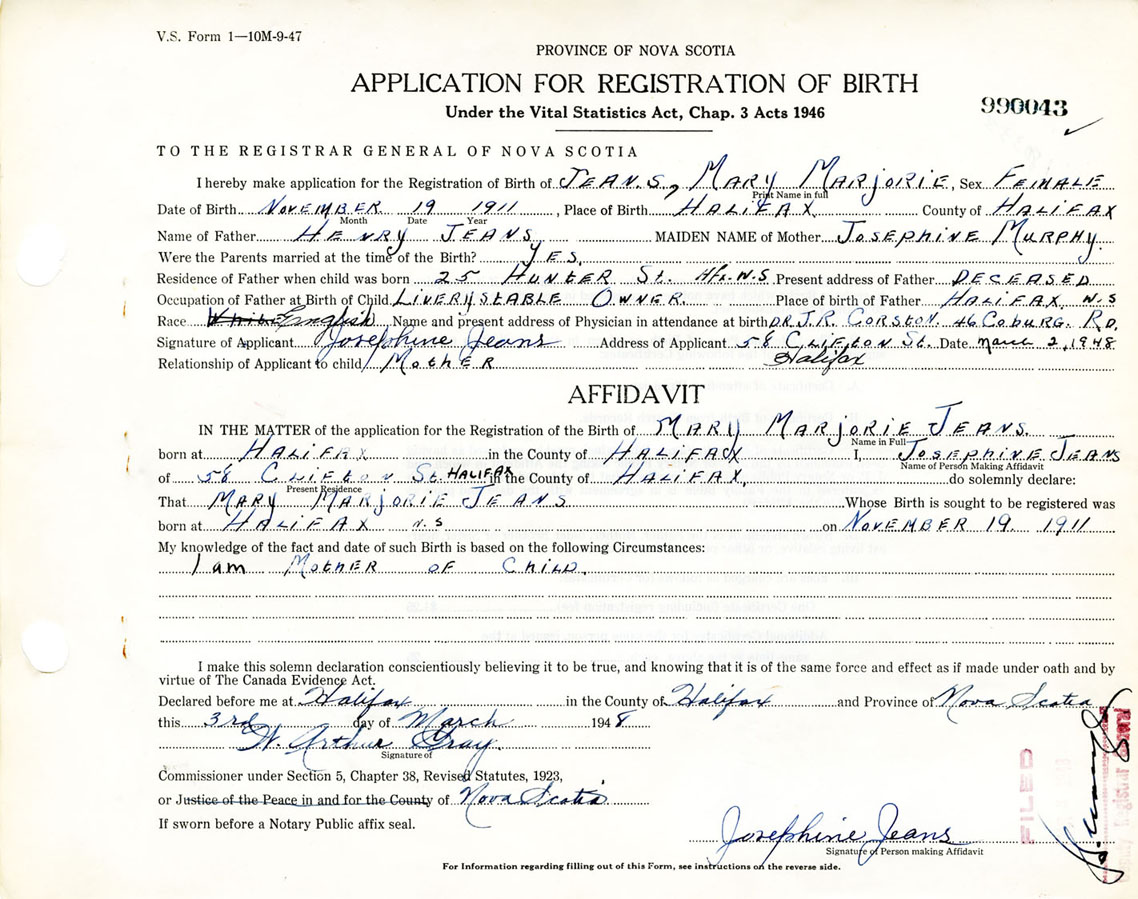 V.S. Form 1—10M-9-47
PROVINCE OF NOVA SCOTIA
APPLICATION FOR REGISTRATION OF BIRTH
Under the Vital Statistics Act, Chap. 3 Acts 1946
990043
TO THE REGISTRAR GENERAL OF NOVA SCOTIA
I hereby make application for the Registration of Birth of JEANS, MARY MARJORIE, Sex FEMALE
Print Name in full
Date of Birth NOVEMBER 19 1911, Place of Birth HALIFAX County of HALIFAX
Month Date Year
Name of Father HENRY JEANS MAIDEN NAME of Mother JOSEPHINE MURPHY.
Were the Parents married at the time of the Birth? YES.
Residence of Father when child was born 25 HUNTER St. Hfx. N.S Present address of Father DECEASED
Occupation of Father at Birth of Child LIVERYSTABLE OWNER. Place of birth of Father HALIFAX N.S
Race White English Name and present address of Physician in attendance at birth DR. J.R. CORSTON. 46 COBURG. RD.
Signature of Applicant Josephine Jeans Address of Applicant 58 CLIFTON St. Date March 2, 1948
Halifax
Relationship of Applicant to child MOTHER
AFFIDAVIT
IN THE MATTER of the application for the Registration of the Birth of MARY MARJORIE JEANS.
Name in Full
born at HALIFAX in the County of HALIFAX I, JOSEPHINE JEANS
Name of Person Making Affidavit
of 58 CLIFTON St. HALIFAX in the County of HALIFAX, do solemnly declare:
Present Residence
That MARY MARJORIE JEANS Whose Birth is sought to be registered was
born at HALIFAX N.S on NOVEMBER 19 1911
My knowledge of the fact and date of such Birth is based on the following Circumstances:
I am MOTHER OF CHILD.
I make this solemn declaration conscientiously believing it to be true, and knowing that it is of the same force and effect as if made under oath and by
virtue of The Canada Evidence Act.
Declared before me at Halifax in the County of Halifax and Province of Nova Scotia
this 3rd day of March 1948
W. Arthur Gray.
Signature of
Commissioner under Section 5, Chapter 38, Revised Statutes, 1923,
or Justice of the Peace in and for the County of Nova Scotia
If sworn before a Notary Public affix seal.
Josephine Jeans
Signature of Person making Affidavit
For Information regarding filling out of this Form, see instructions on the reverse side.
FILED